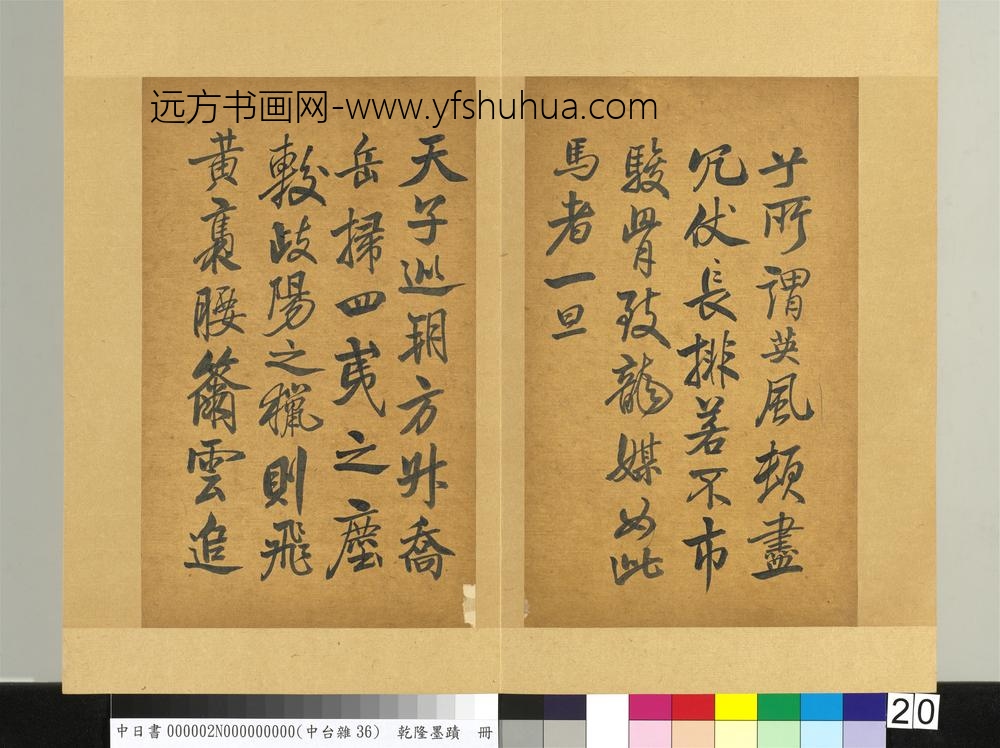 远方书画网-www.yfshuhua.com
乎所謂英風頓盡
冗仗長排若不市
駿骨致龍媒如此
馬者一旦
天子巡朔方升喬
岳掃四夷之塵
較岐陽之獵則飛
黃褭腰籋雲追
中日書000002N000000000(中台雜36) 乾隆墨蹟 冊
20